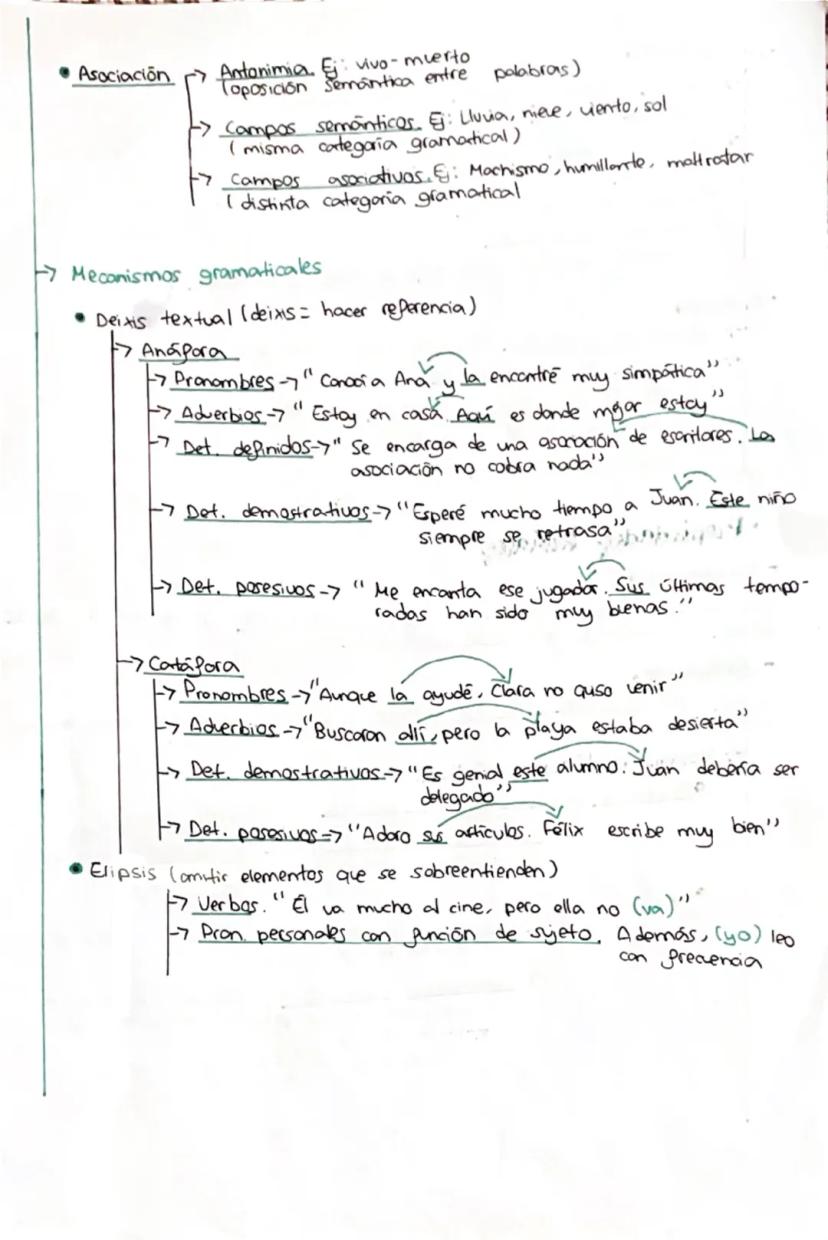 • Asociación → Antonimia. Ej: vivo-muerto
(oposición semántica entre palabras)
→ Campos semánticos. Ej: Lluvia, nieve, viento, sol
(misma categoría gramatical)
→ Campos asociativos. Ej: Machismo, humillante, maltratar
(distinta categoría gramatical
→ Mecanismos gramaticales
• Deixis textual (deixis = hacer referencia)
→ Anáfora
→ Pronombres → "Conocí a Ana y la encontré muy simpática"
→ Adverbios → "Estoy en casa. Aquí es donde mejor estoy"
→ Det. definidos → "Se encarga de una asociación de escritores. La
asociación no cobra nada"
→ Det. demostrativos → "Esperé mucho tiempo a Juan. Este niño
siempre se retrasa"
→ Det. posesivos → "Me encanta ese jugador. Sus últimas tempo-
radas han sido muy buenas."
→ Catáfora
→ Pronombres → "Aunque la ayudé, Clara no quso venir"
→ Adverbios → "Buscaron allí, pero la playa estaba desierta"
→ Det. demostrativos → "Es genial este alumno: Juan debería ser
delegado"
→ Det. posesivos → "Adoro sus artículos. Félix escribe muy bien"
• Elipsis (omitir elementos que se sobreentienden)
→ Verbos. "Él va mucho al cine, pero ella no (va)"
→ Pron. personales con función de sujeto. Además, (yo) leo
con frecuencia